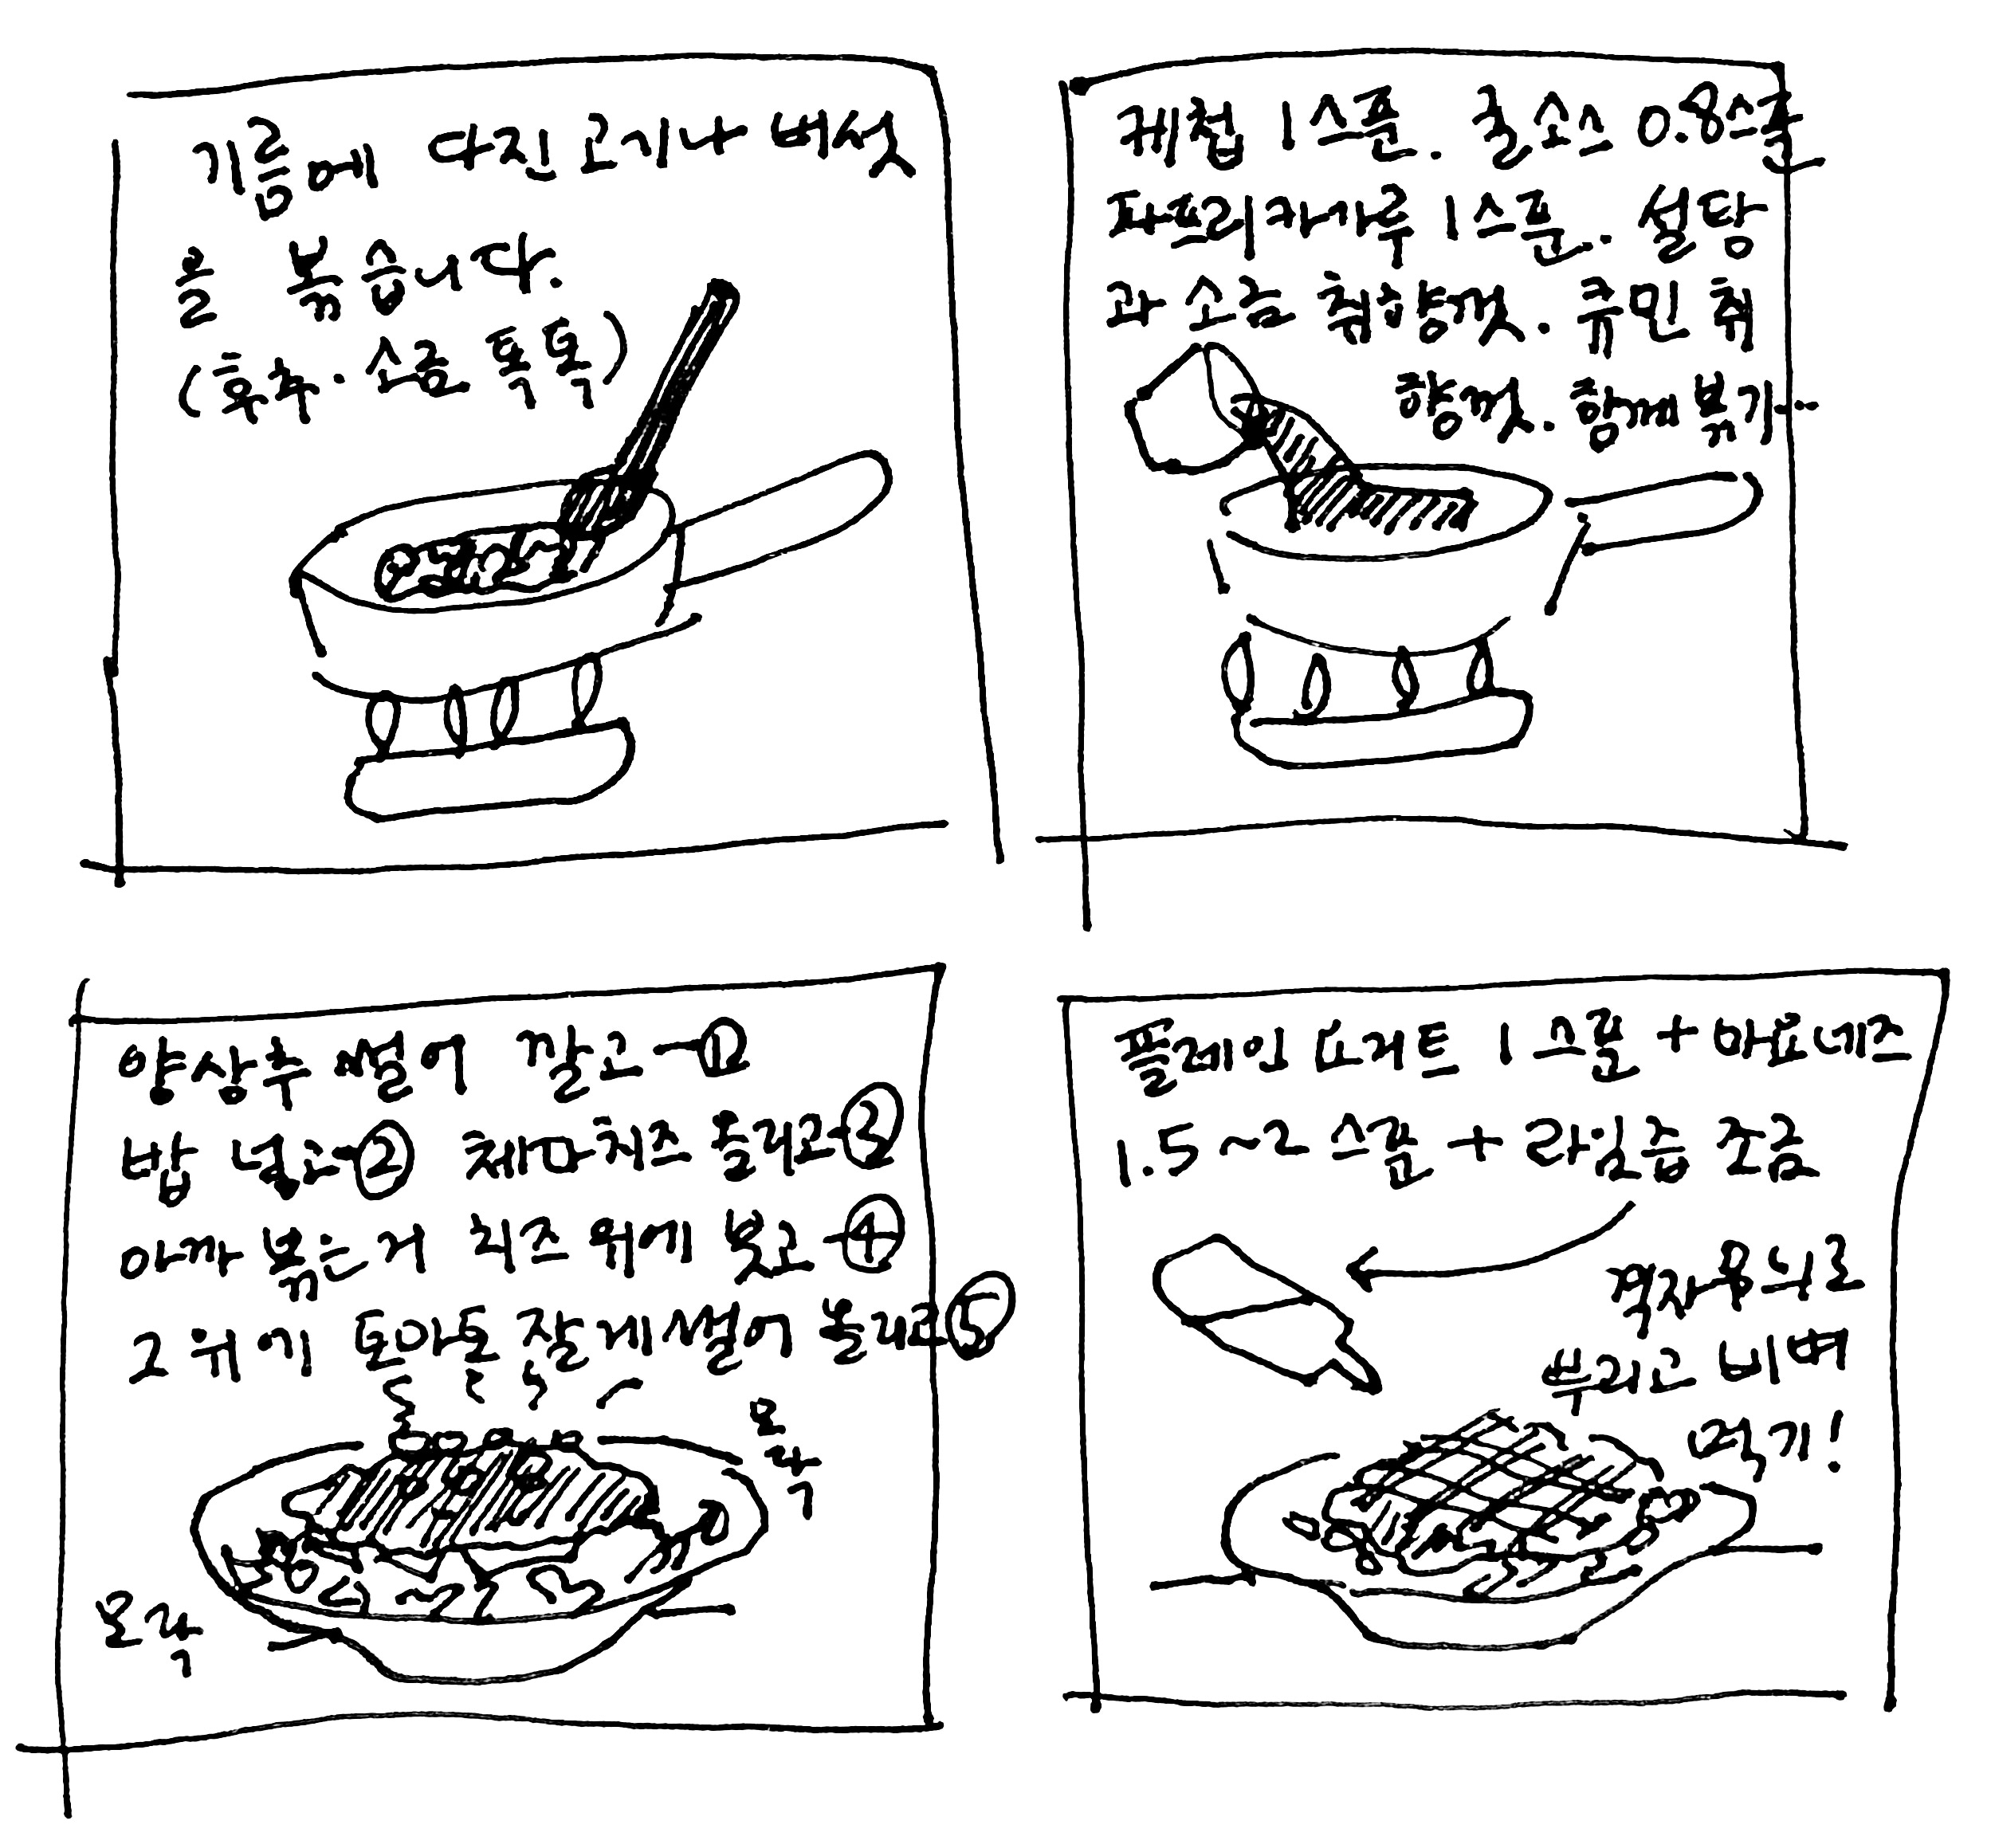 기름에 다진 고기나 버섯
을 볶습니다.
(후추·소금 톡톡)
케첩 1스푼. 굴소스 0.8스푼
파프리카가루 1스푼. 설탕
과 소금 취향껏. 큐민 취
향껏. 함께 볶기…
양상추 썰어 깔고-①
밥 넣고-② 체다치즈 올리고-③
아까 볶은거 치즈 위에 붓고-④
그 위에 토마토 잘게 썰어 올리고⑤
모락
모락
플레인 요거트 1스푼 + 마요네즈
1.5~2 스푼 + 라임즙 조금
격자무늬로
뿌리고 비벼
먹기!